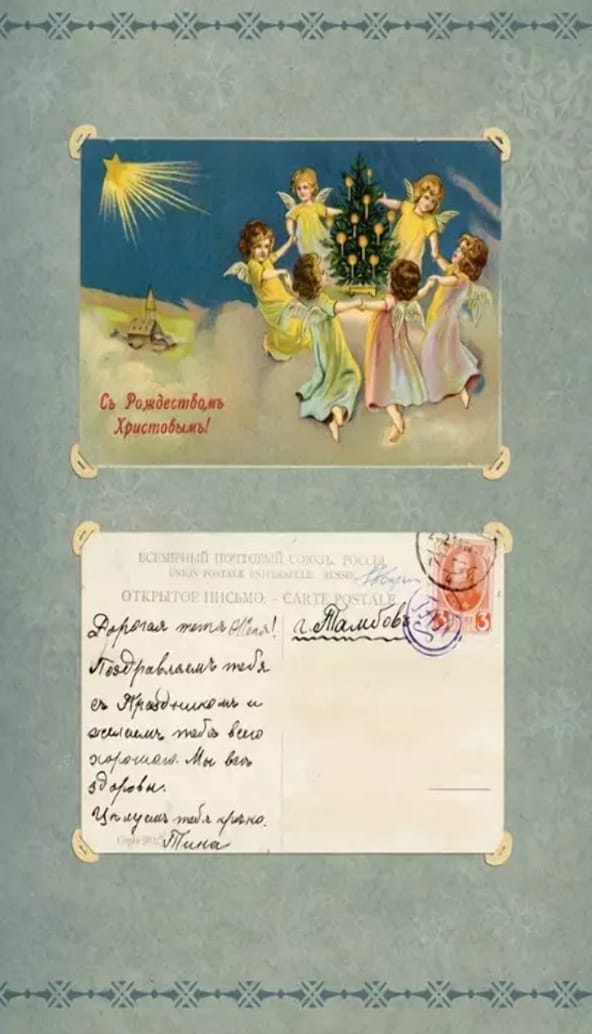 Съ Рождествомъ
Христовымъ!
ВСЕМІРНЫЙ ПОЧТОВЫЙ СОЮЗЪ. РОССІЯ
UNION POSTALE UNIVERSELLE. RUSSIE
ОТКРЫТОЕ ПИСЬМО. – CARTE POSTALE
Дорогая тетя Женя!
Поздравляемъ тебя
съ Праздникомъ и
желаемъ тебѣ всего
хорошаго. Мы всѣ
здоровы.
Цѣлуемъ тебя крѣпко.
Тина
г. Тамбовъ
3